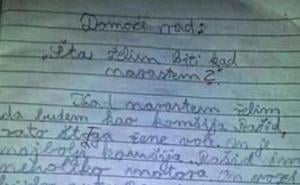 Domaći rad:
„Šta želim biti kad
narastem?"
Kad narastem želim
da budem kao komšija Rašid,
zato što ga žene vole on je
najbolji komšija. Rašid im
nekoliko motora on vozi